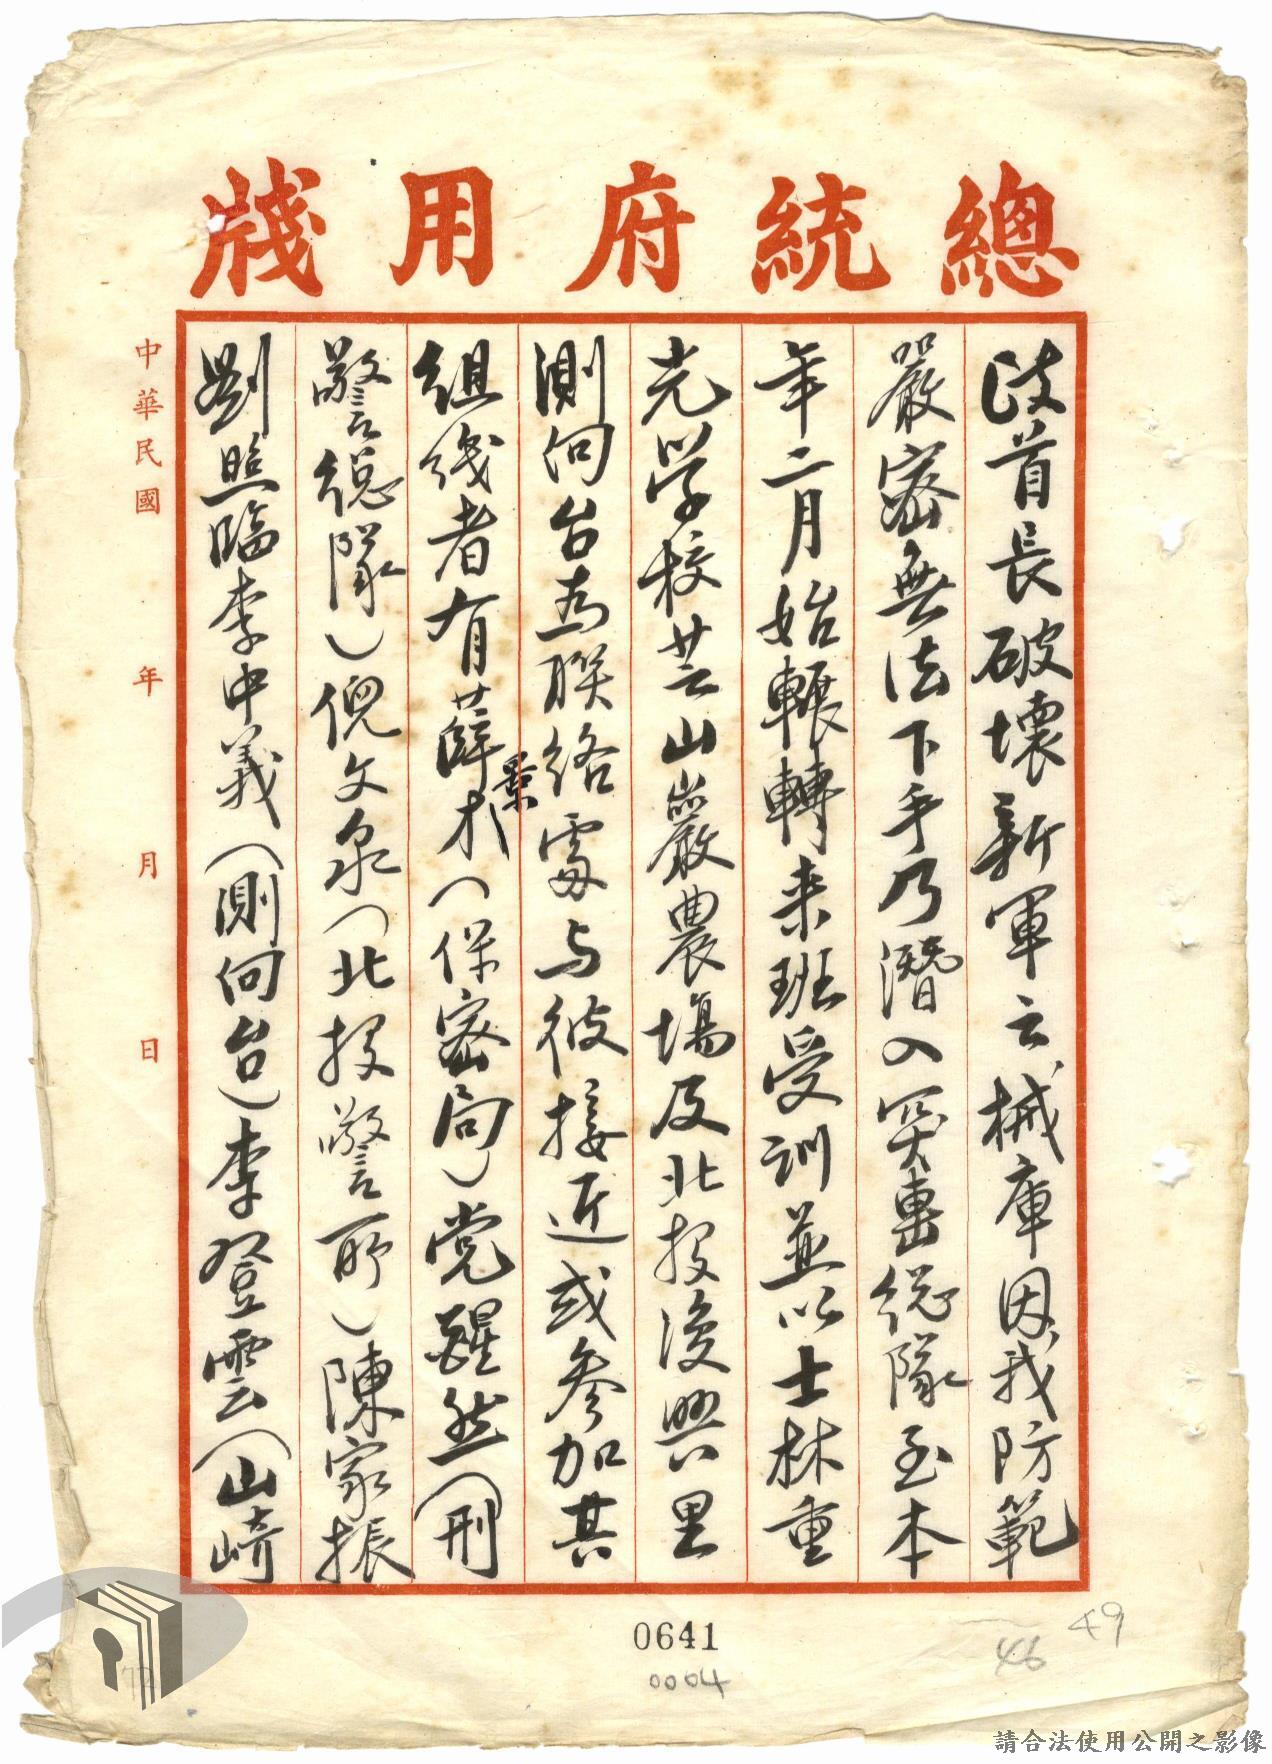 總統府用牋
政首長破壞新軍云械庫因我防範
嚴密無法下手乃潛入突擊總隊至本
年二月始輾轉来班受訓並以士林重
光学校芸山巖農場及北投後興里
測向台為联絡雷与彼接近或參加其
組織者有薛介(保密局)党醒然(刑
景
警總隊)倪文泉(北投警所)陳家振
劉照臨李中義(測向台)李登雲(山崎
中華民國 年 月 日
0641
0004
46
49
請合法使用公開之影像